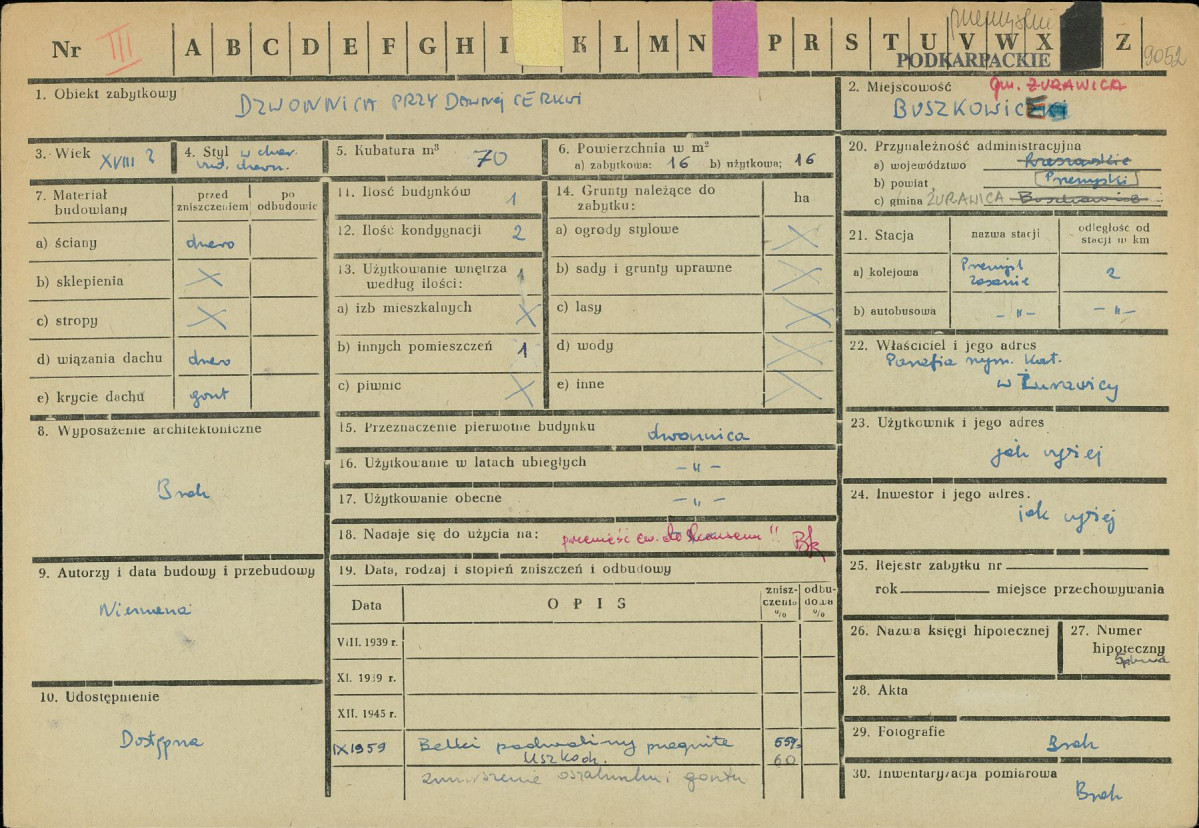 przemyskie
Nr III A B C D E F G H I K L M N P R S T U V W X Z 9052
PODKARPACKIE
1. Obiekt zabytkowy
DZWONNICA PRZY DAWNEJ CERKWI
2. Miejscowość gm. ŻURAWICA
BUSZKOWICE
3. Wiek XVIII ?
4. Styl w char.
bud. drewn.
5. Kubatura m³ 70
6. Powierzchnia w m²
a) zabytkowa: 16 b) użytkowa: 16
7. Materiał budowlany
przed zniszczeniem
po odbudowie
a) ściany drewo
b) sklepienia X
c) stropy X
d) wiązania dachu drewo
e) krycie dachu gont
8. Wyposażenie architektoniczne
Brak
9. Autorzy i data budowy i przebudowy
Nieznana
10. Udostępnienie
Dostępna
11. Ilość budynków 1
12. Ilość kondygnacji 2
13. Użytkowanie wnętrza 1
według ilości:
a) izb mieszkalnych X
b) innych pomieszczeń 1
c) piwnic X
14. Grunty należące do
zabytku:
ha
a) ogrody stylowe X
b) sady i grunty uprawne X
c) lasy X
d) wody X
e) inne X
15. Przeznaczenie pierwotne budynku dzwonnica
16. Użytkowanie w latach ubiegłych – " –
17. Użytkowanie obecne – " –
18. Nadaje się do użycia na: przenieść ew. do skansenu !!
19. Data, rodzaj i stopień zniszczeń i odbudowy
Data
OPIS
zniszczenia %
odbudowa %
VIII. 1939 r.
XI. 1939 r.
XII. 1945 r.
IX 1959 Belki podwaliny przegniłe 55%
uszkodz. 60
zniszczenie oszalunku i gontu
20. Przynależność administracyjna
a) województwo Rzeszowskie
b) powiat Przemyski
c) gmina ŻURAWICA
21. Stacja
nazwa stacji
odległość od stacji w km
a) kolejowa Przemyśl
Zasanie 2
b) autobusowa – " – – " –
22. Właściciel i jego adres
Parafia rzym. kat.
w Żurawicy
23. Użytkownik i jego adres
jak wyżej
24. Inwestor i jego adres.
jak wyżej
25. Rejestr zabytku nr
rok miejsce przechowywania
26. Nazwa księgi hipotecznej
27. Numer
hipoteczny
28. Akta
29. Fotografie
Brak
30. Inwentaryzacja pomiarowa
Brak